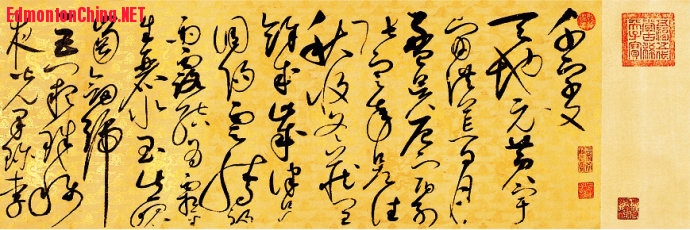 EdmontonChina.NET
千字文
天地元黃宇
宙洪荒日月
盈昃辰宿列
張寒來暑往
秋收冬藏閏
餘成歲律呂
調陽雲騰致
雨露結為霜金
生麗水玉出崑
崗劍號
巨闕珠稱
夜光果珍李